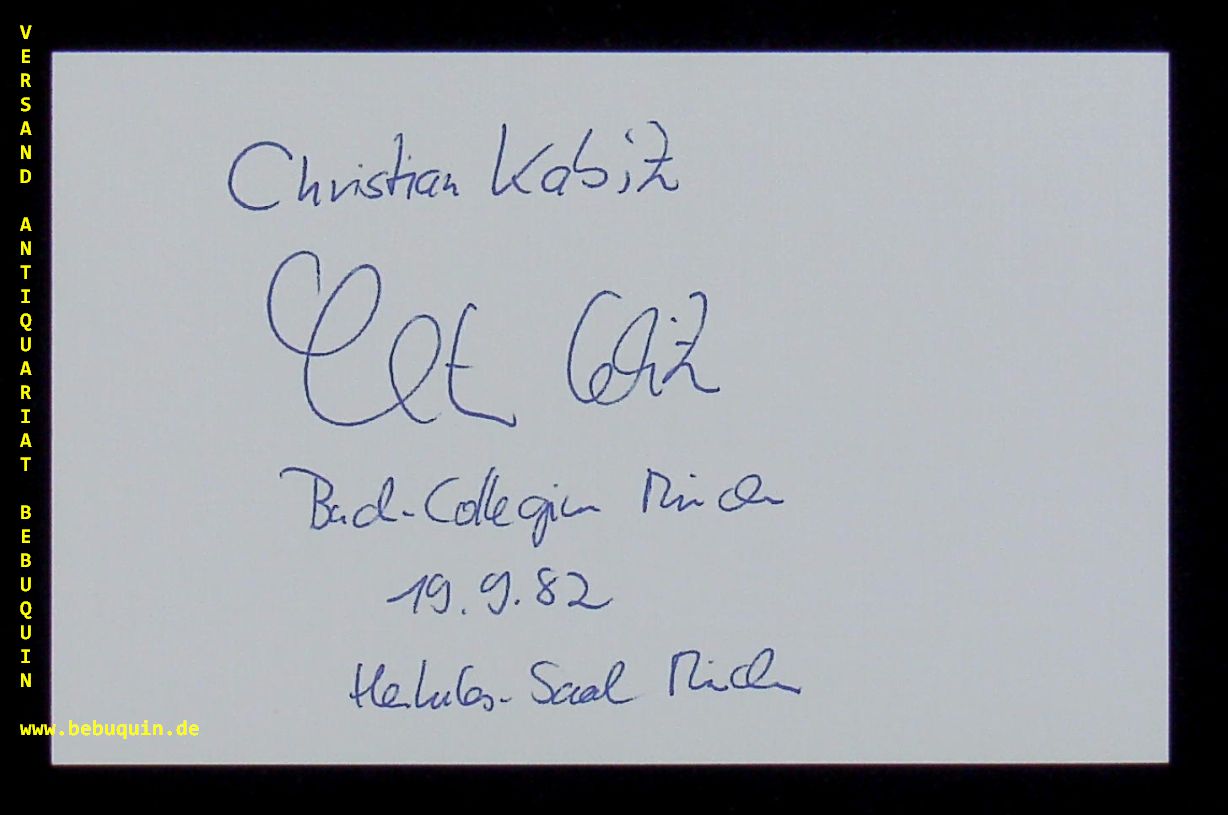 VERSAND ANTIQUARIAT BEBUQUIN
www.bebuquin.de
Christian Kabitz
Bach-Collegium München
19.9.82
Herkules-Saal München